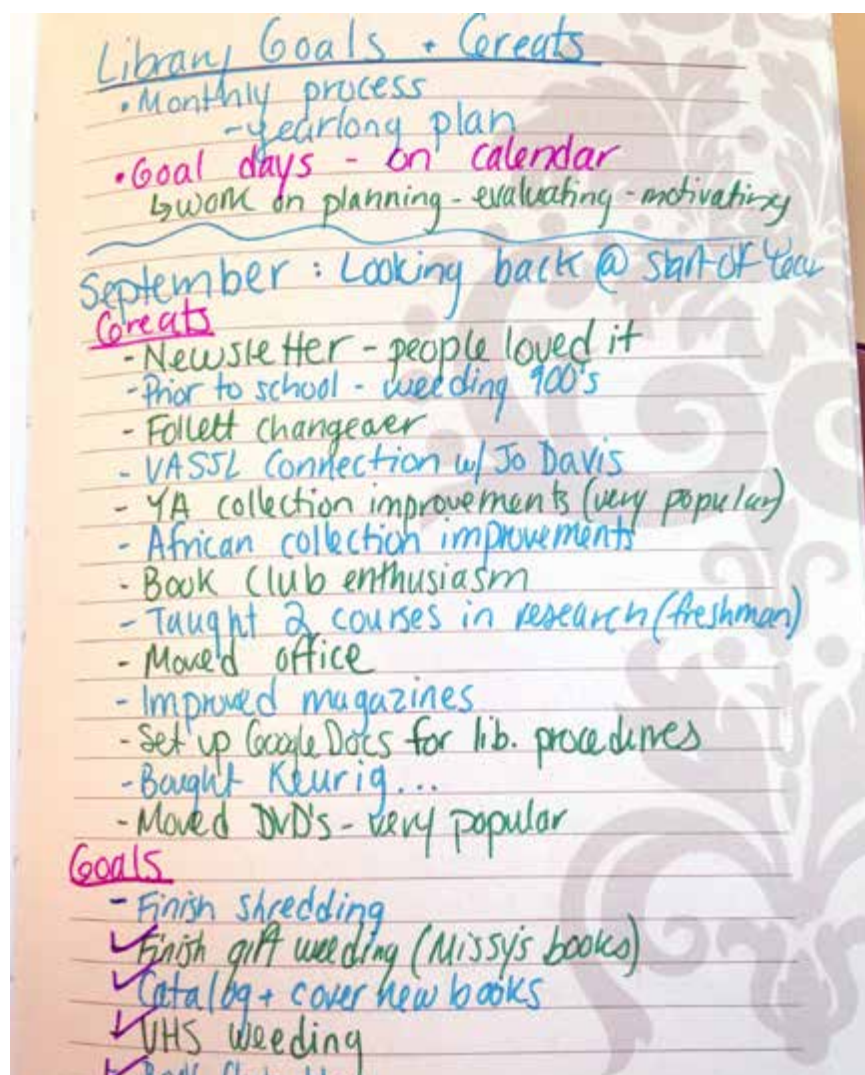 Library Goals + Greats
• Monthly process
- yearlong plan
• Goal days - on calendar
↳ work on planning - evaluating - motivating
September : Looking back @ start of Year
Greats
- Newsletter - people loved it
- Prior to school - weeding 900's
- Follett changeover
- VASSL Connection w/ Jo Davis
- YA collection improvements (very popular)
- African collection improvements
- Book Club enthusiasm
- Taught 2 courses in research (freshman)
- Moved office
- Improved magazines
- Set up Google Docs for lib. procedures
- Bought Keurig...
- Moved DVD's - very popular
Goals
- Finish shredding
✓ Finish gift weeding (Missy's books)
✓ Catalog + cover new books
✓ VHS weeding